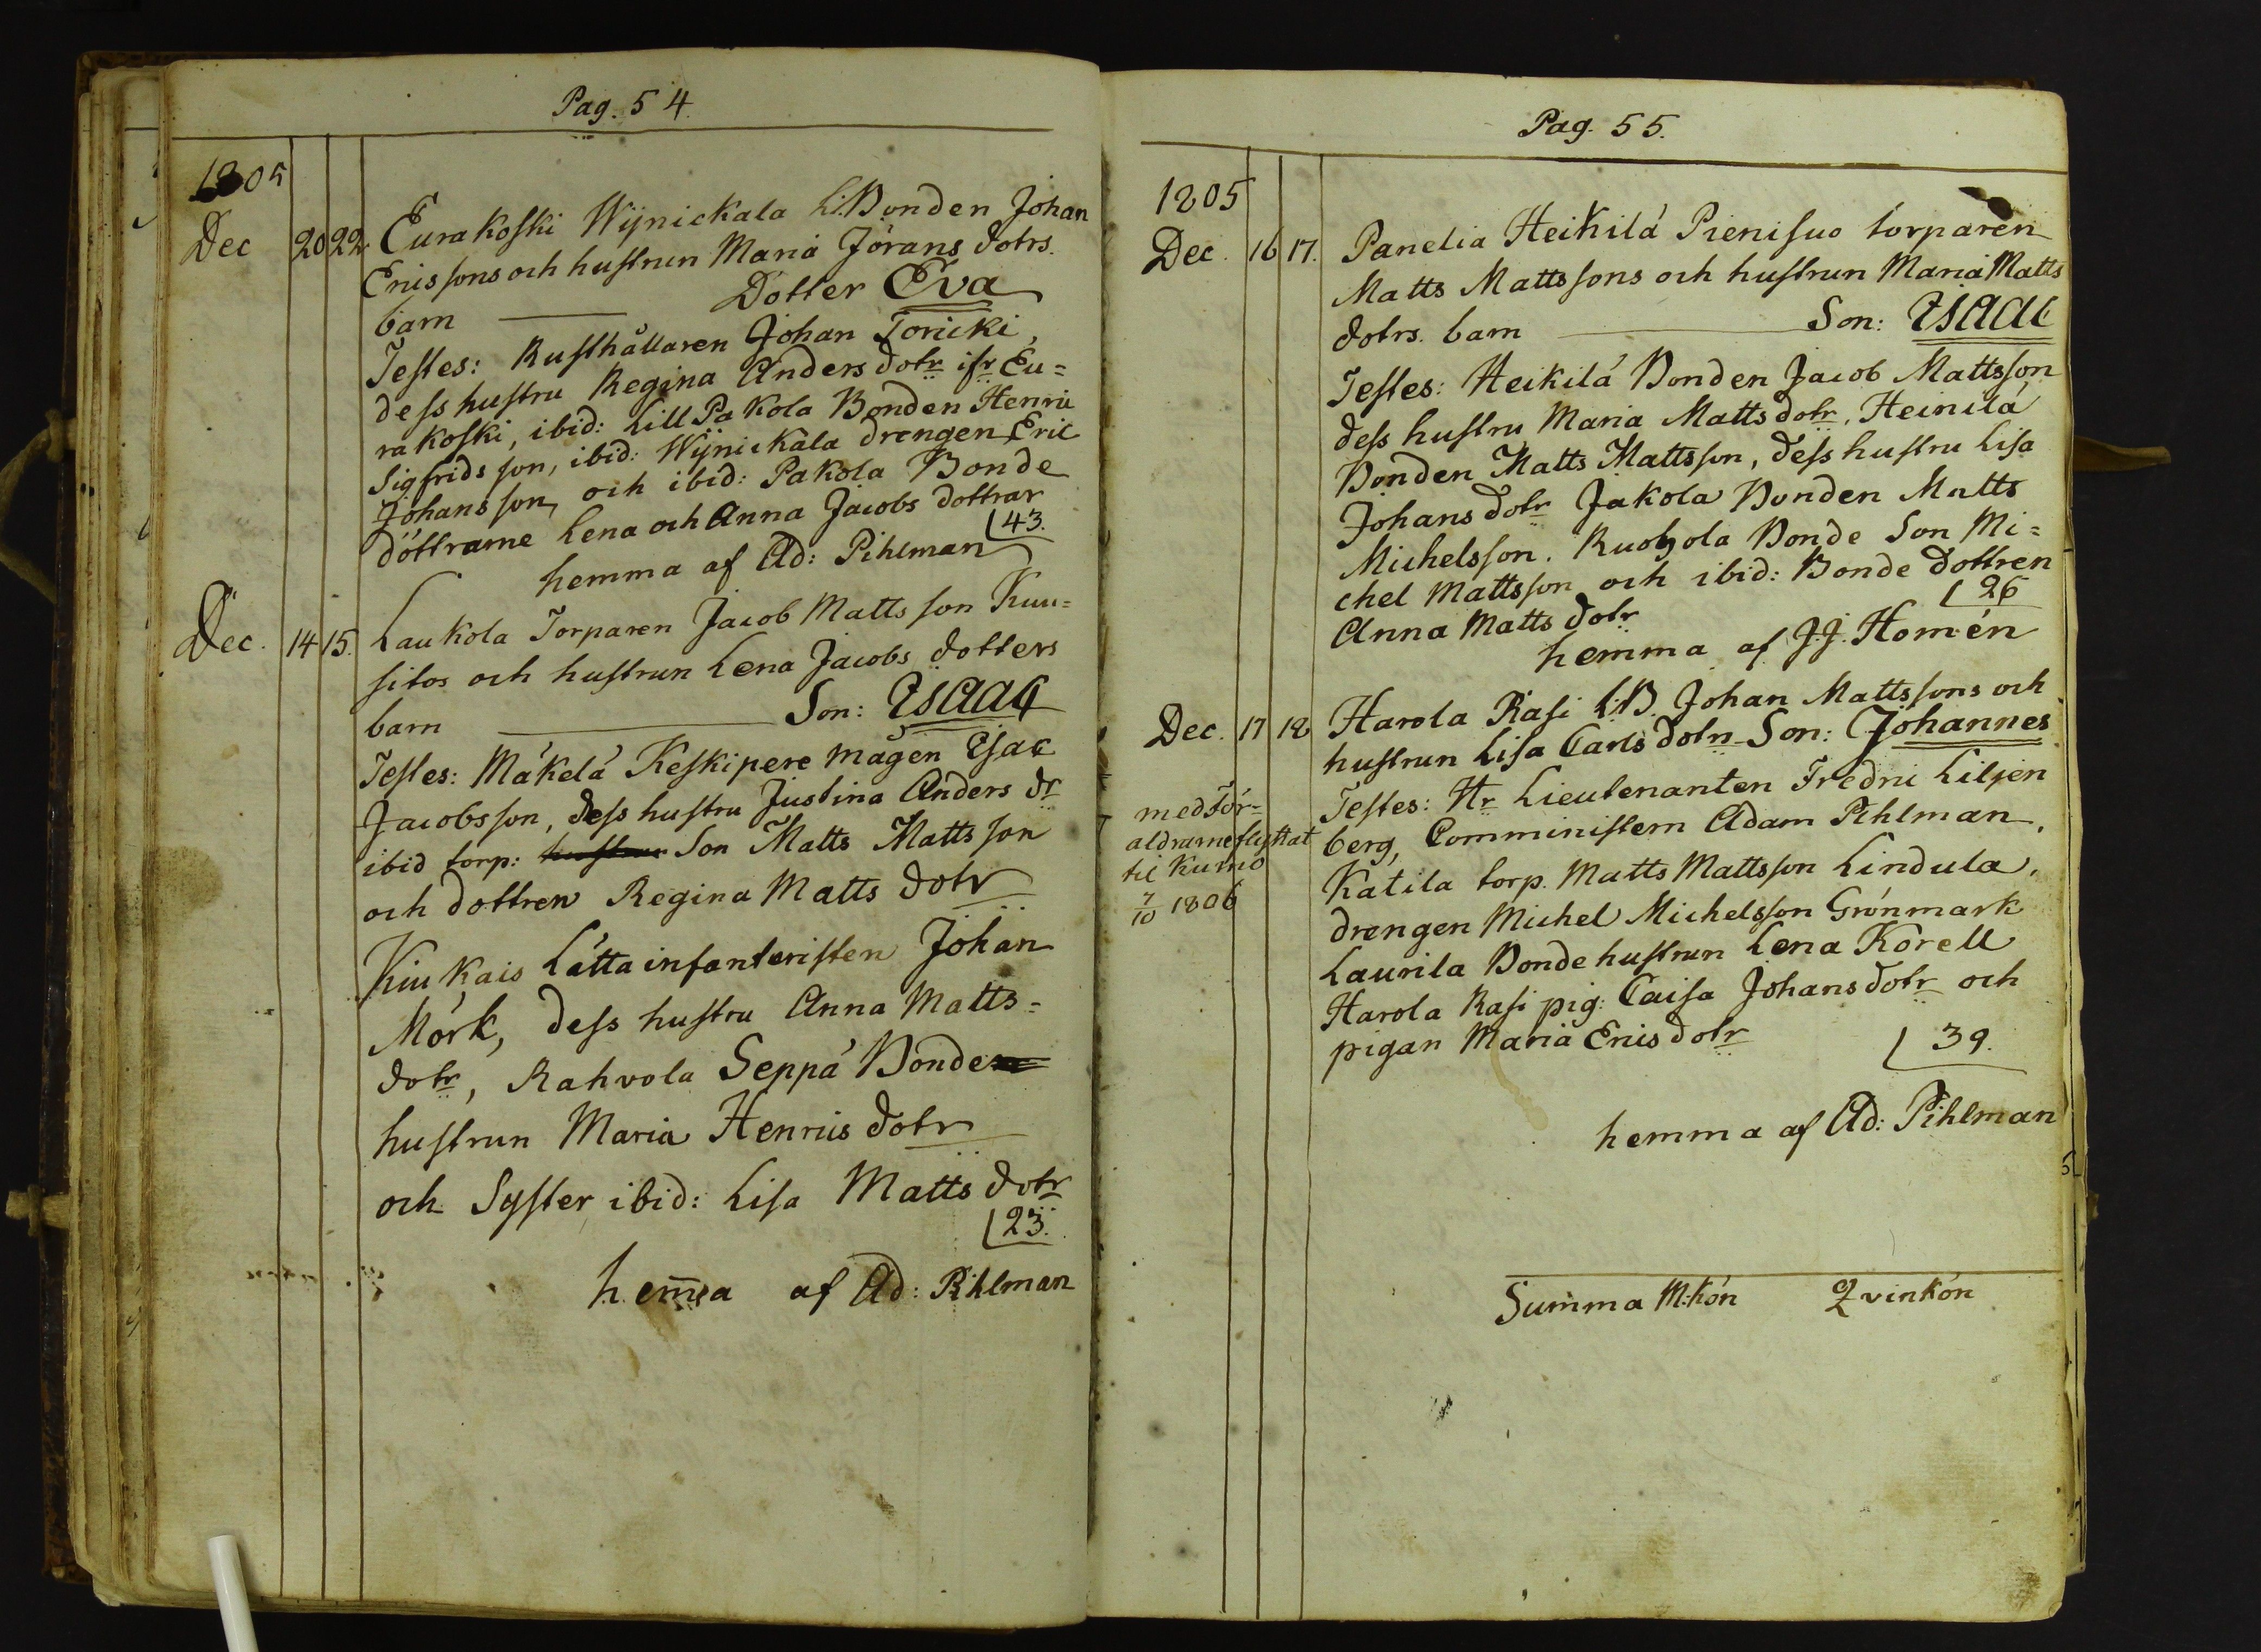 Pag. 54.
1805
Dec 20 22. Eurakoski Wijnickala L:Bonden Johan
Ericssons och hustrun Maria Jörans dotrs.
barn Dotter Eva
Testes: Rusthållaren Johan Toricki,
dess hustru Regina Anders dotr ifr Eu=
rakoski, ibid: Lill Pakola Bonden Henric
Sigfridsson, ibid: Wijnickala drengen Eric
Johansson, och ibid: Pakola Bonde
döttrarne Lena och Anna Jacobs dottrar
43.
hemma af Ad: Pihlman
Dec. 14 15. Laukola Torparen Jacob Mattsson Kuu=
sitos och hustrun Lena Jacobs dotters
barn Son: Isaac
Testes: Mäkelä Keskipere mågen Esac
Jacobsson, dess hustru Justina Anders dr
ibid torp: Son Matts Mattsson
och dottren Regina Matts dotr
Kiukais Lätta infanteristen Johan
Mörk, dess hustru Anna Matts=
dotr, Rahvola Seppä Bonde
hustrun Maria Henrics dotr
och Syster ibid: Lisa Matts dotr
23.
hem̅a af Ad: Pihlman
Pag. 55.
1805
Dec. 16 17. Panelia Heikilä Pienisuo torparen
Matts Mattssons och hustrun Maria Matts
dotrs. barn Son: Isaac
Testes: Heikilä Bonden Jacob Mattsson
dess hustru Maria Matts dotr, Heinilä
Bonden Matts Mattsson, dess hustru Lisa
Johans dotr Jakola Bonden Matts
Michelsson. Ruohola Bonde Son Mi=
chel Mattsson och ibid: Bonde dottren
Anna Matts dotr 26
hemma af J.J. Homén
Dec. 17 18 Harola Rasi L:B. Johan Mattssons och
hustrun Lisa Carls dotrs Son: Johannes
Testes: Hr Lieutenanten Fredric Liljen
berg, Comministern Adam Pihlman,
Katila torp. Matts Mattsson Lindula,
drengen Michel Michelsson Grönmark
Laurila Bonde hustrun Lena Korell
Harola Rasi pig: Caisa Johans dotr och
pigan Maria Erics dotr 39.
med För=
äldrarne flyttat
til Kumo
7/10 1806
hemma af Ad: Pihlman
Summa M:kön Qvinkön